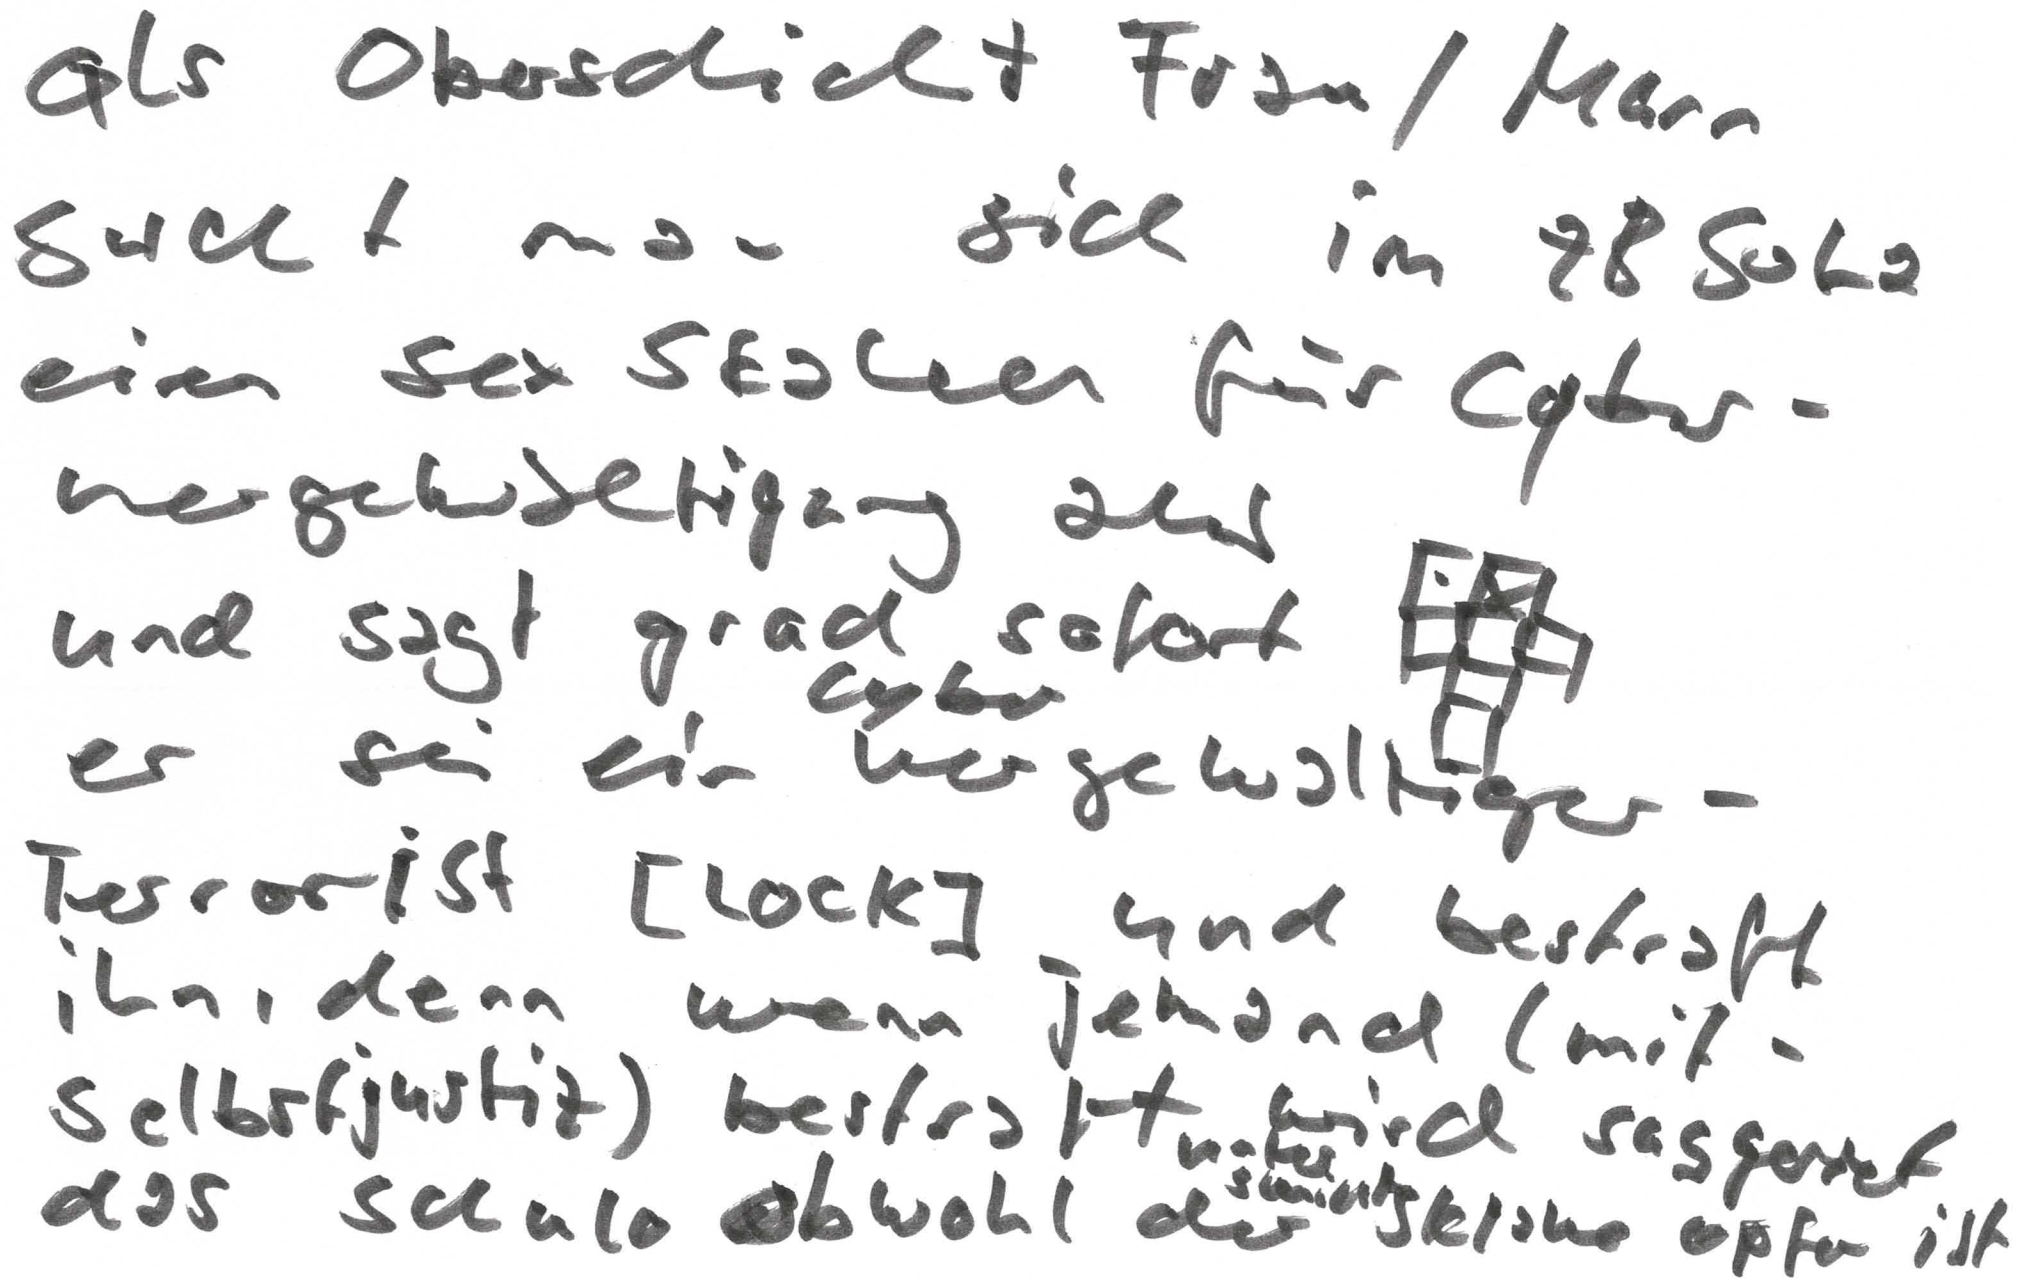 als Oberschicht Frau / Mann
sucht man sich im
einen sex Sklaven für Cyber-
vergewaltigung aus
und sagt grad sofort
cyber
er sei ein vergewaltiger -
Terrorist [LOCK] und bestraft
ihn, denn wenn Jemand (mit -
selbstjustiz) bestraft wird
das schuld obwohl der sklave opfer ist